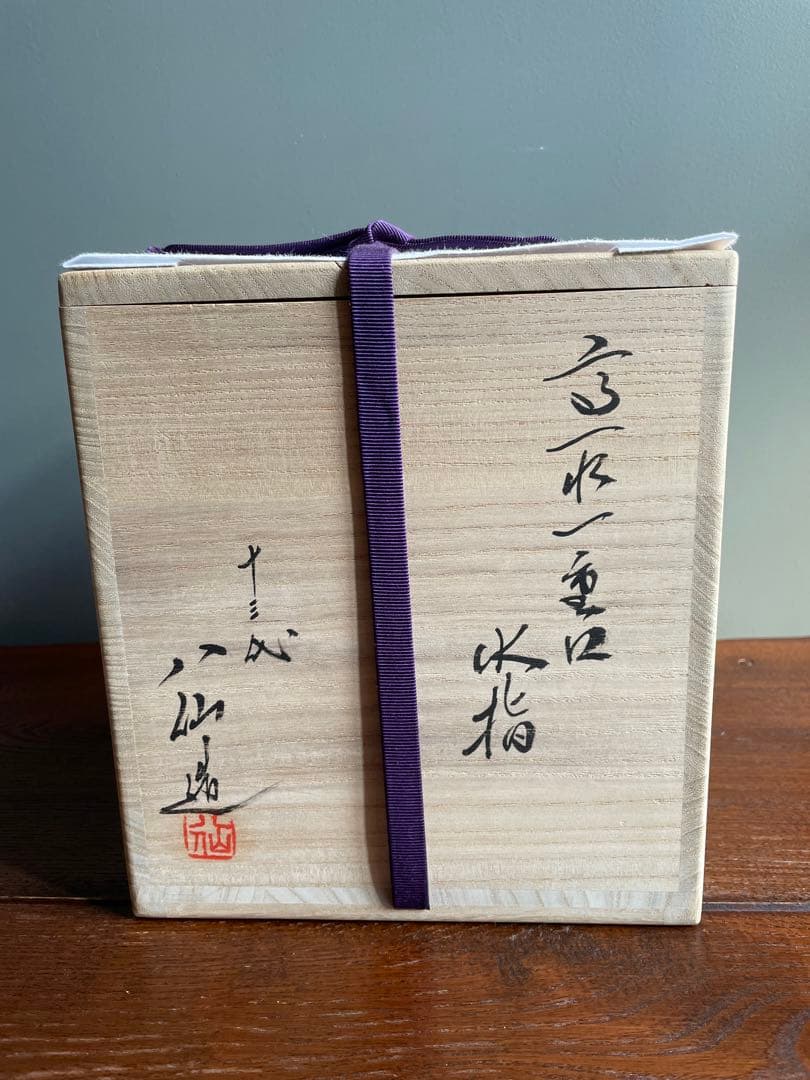 高取一重口
水指
十三代
八仙造
八仙